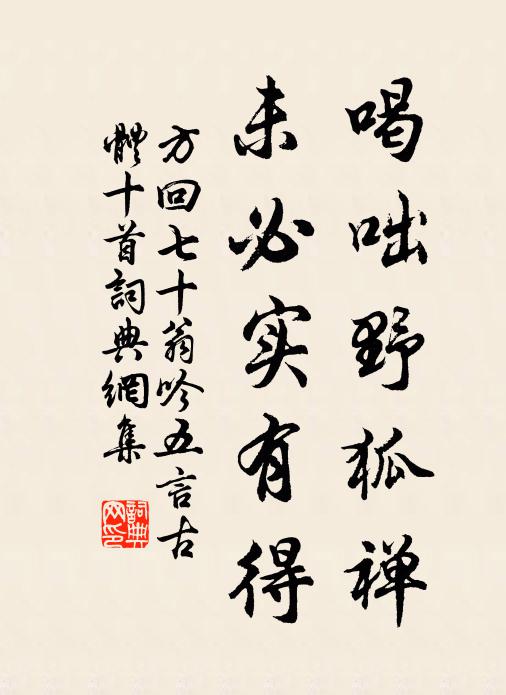 喝咄野狐禅
未必实有得
方回七十翁吟五言古
體十首詞典網集
詞典网印